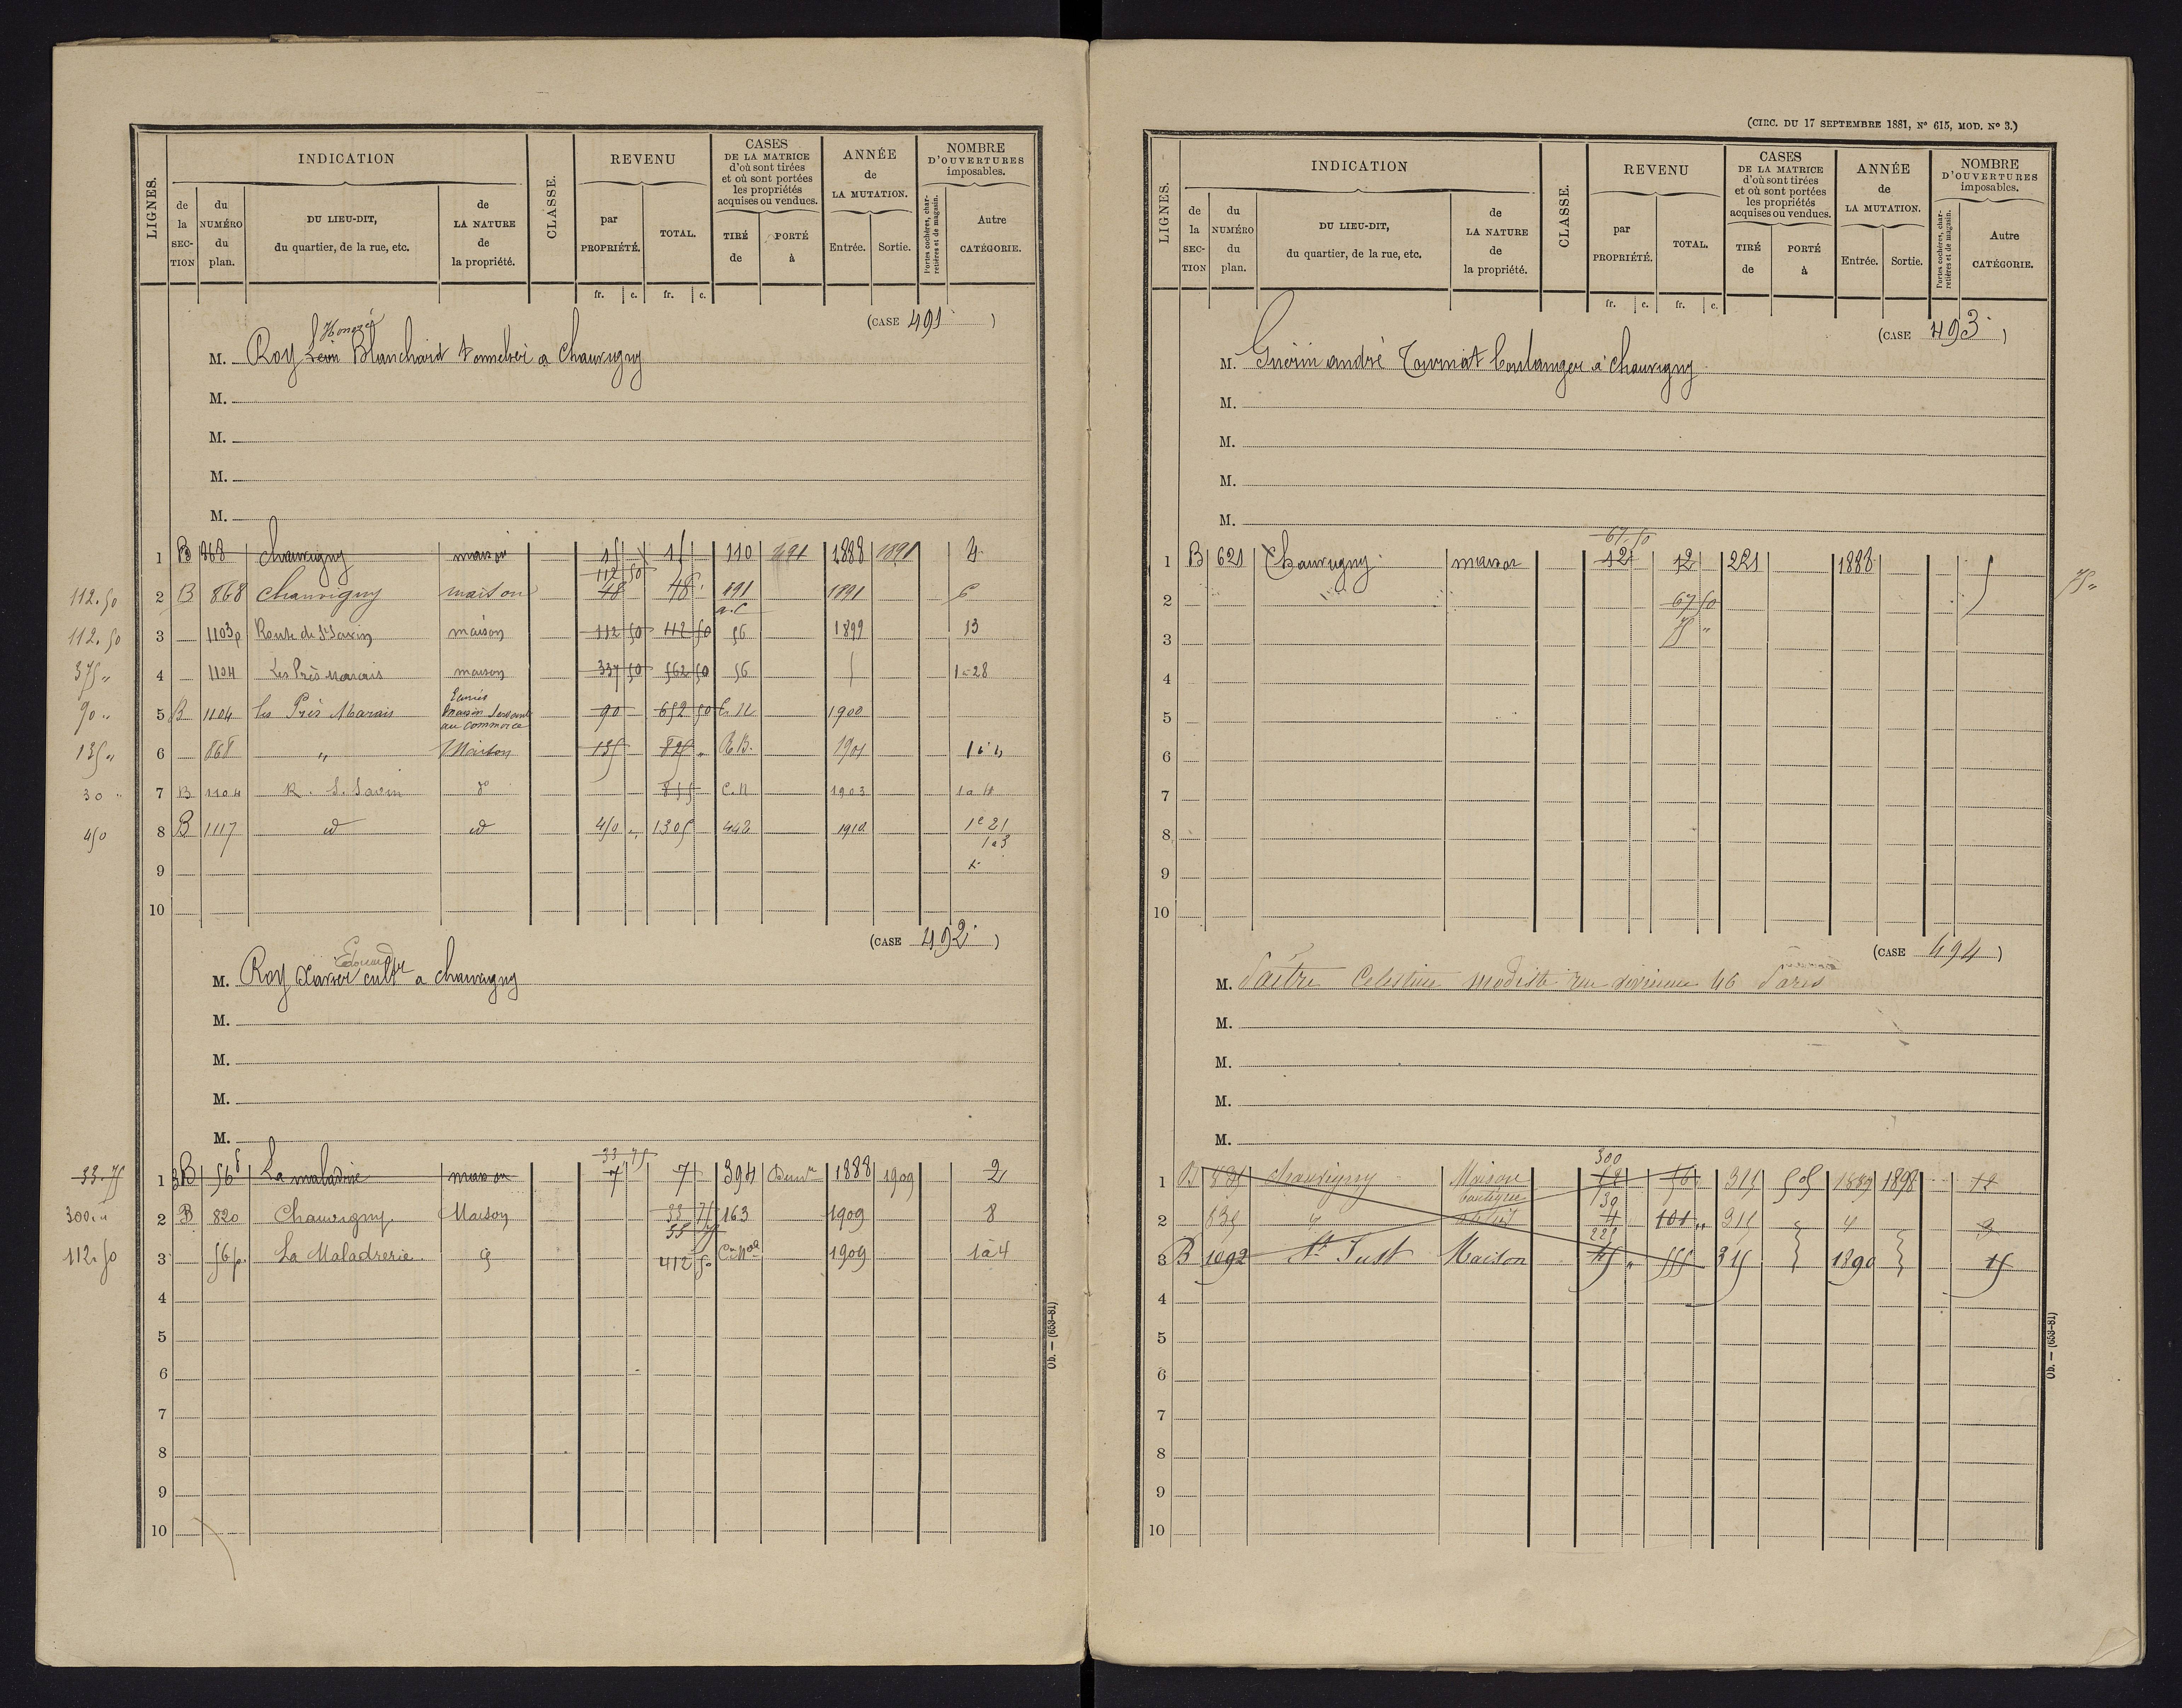 LIGNES.
INDICATION
de la SECTION
du NUMÉRO du plan.
DU LIEU-DIT, du quartier, de la rue, etc.
de LA NATURE de la propriété.
CLASSE.
REVENU
par PROPRIÉTÉ.
TOTAL.
CASES DE LA MATRICE d'où sont tirées et où sont portées les propriétés acquises ou vendues.
TIRÉ de
PORTÉ à
ANNÉE de LA MUTATION.
Entrée.
Sortie.
NOMBRE D'OUVERTURES imposables.
Portes cochères, charretières et de magasin.
Autre CATÉGORIE.
fr. c. fr. c.
(CASE 491)
Honoré
M. Roy Léon Blanchard tonnelier a Chauvigny
M.
M.
M.
M.
1 B 868 Chauvigny maison 15 15 110 1888 1891 4
112 50
112.50 2 B 868 Chauvigny maison 48 48 191 1891 6
112.50 3 1103p Route de St Savin maison 112 50 112 50 56 1899 13
375 " 4 1104 Les Prés Marais maison 337 50 562 50 56 1à28
90 " 5 B 1104 les Prés Marais 90 652 50 C.N 1900
au commerce
135 " 6 868 " Maison 135 825 " 1901 1 à 4
30 " 7 B 1104 R. S. Savin do 855 C.N 1903
450 8 B 1117 id id 450 " 1305 442 1910 21
1à3
9
10
(CASE 492)
Edouard
M. Roy Xavier cultr a chauvigny
M.
M.
M.
M.
33 75
33.75 1 B 56 La maladrie maison 7 7 394 1888 1909 2
300 " 2 B 820 Chauvigny Maison 33 75 163 1909 8
112.50 3 56p. La Maladrerie 412 50 1909 1à4
4
5
6
7
8
9
10
Ob. — (653-81)
(CIRC. DU 17 SEPTEMBRE 1881, Nº 615, MOD. Nº 3.)
LIGNES.
INDICATION
de la SECTION
du NUMÉRO du plan.
DU LIEU-DIT, du quartier, de la rue, etc.
de LA NATURE de la propriété.
CLASSE.
REVENU
par PROPRIÉTÉ.
TOTAL.
CASES DE LA MATRICE d'où sont tirées et où sont portées les propriétés acquises ou vendues.
TIRÉ de
PORTÉ à
ANNÉE de LA MUTATION.
Entrée.
Sortie.
NOMBRE D'OUVERTURES imposables.
Portes cochères, charretières et de magasin.
Autre CATÉGORIE.
fr. c. fr. c.
(CASE 493)
M. Guérin andré Tournat boulanger à chauvigny
M.
M.
M.
M.
67.50
1 B 621 Chauvigny maison 12 12 221 1888 5 75 "
2 67 50
3 75 "
4
5
6
7
8
9
10
(CASE 494)
M. Celestine modiste rue 46 Paris
M.
M.
M.
M.
300
1 B chauvigny Maison 315 505 1889 1898
130
2 835 " 4 101 " 315 "
225
3 B 1092 St Just Maison 45 " 555 315 1890 15
4
5
6
7
8
9
10
Ob. — (653-81)